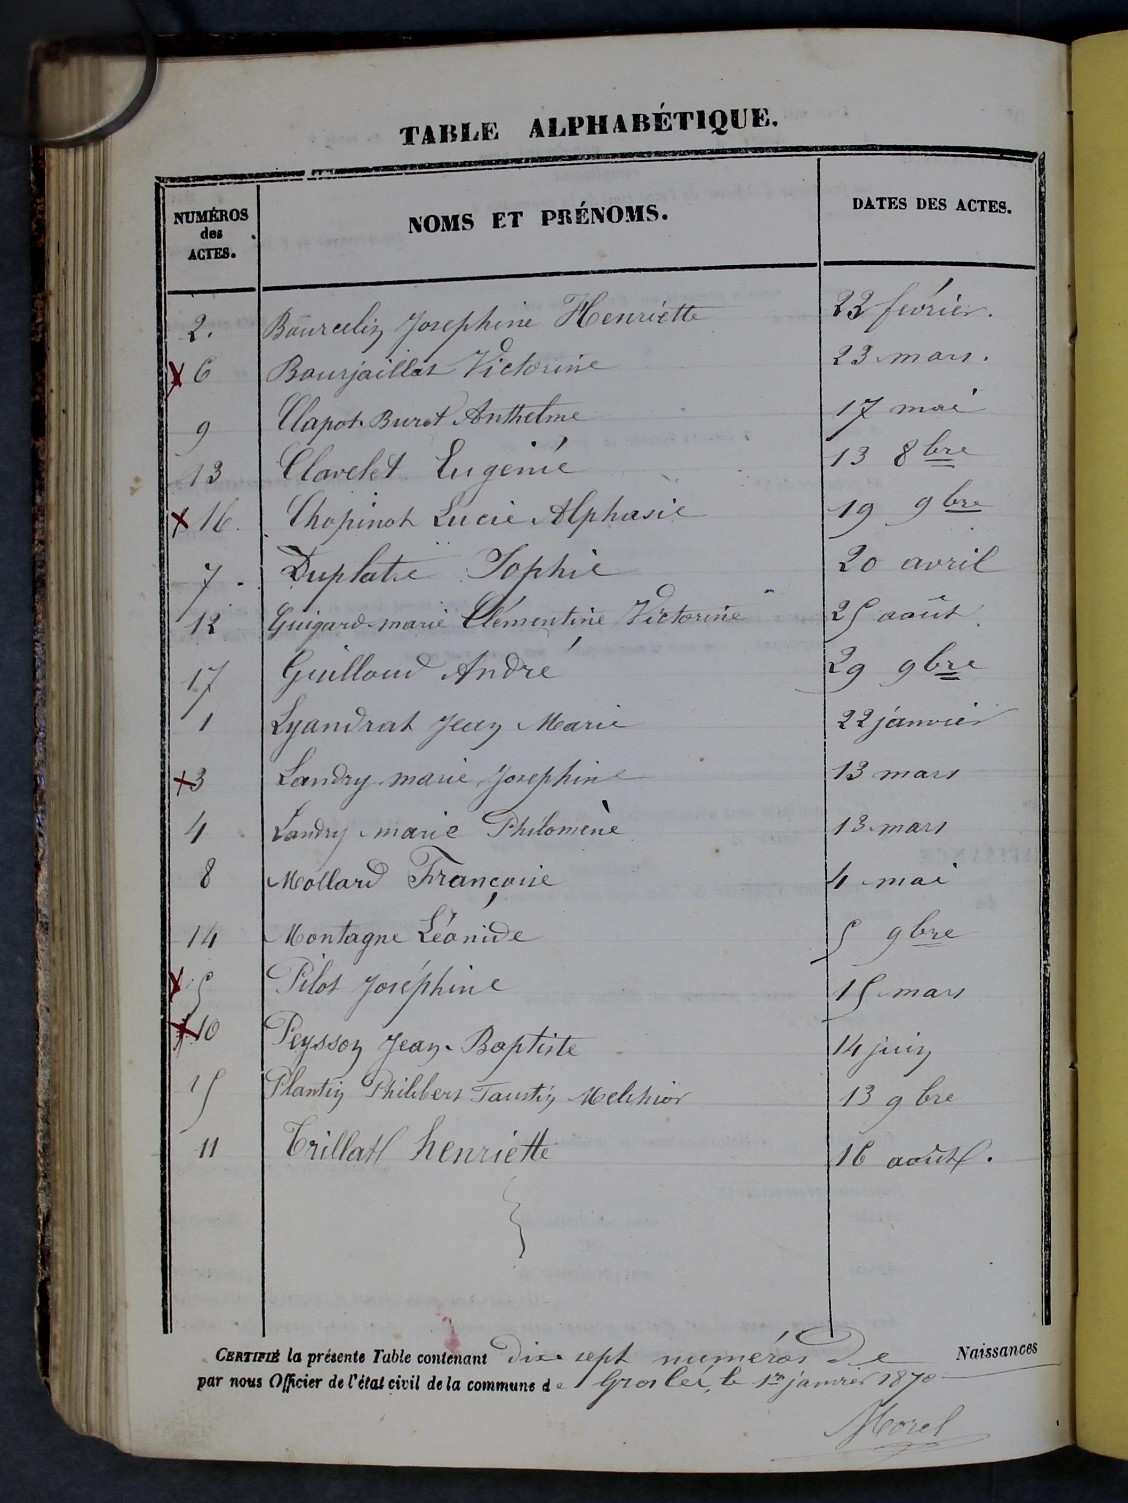 TABLE ALPHABÉTIQUE.
NUMÉROS des ACTES. NOMS ET PRÉNOMS. DATES DES ACTES.
2. Bourcelin Josephine Henriette 22 février.
x 6 Bourjaillat Victorine 23 mars.
9 Clapot-Buret Anthelme 17 mai
13 Clavelet Eugénie 13 8bre
x 16. Chopinot Lucie Alphasie 19 9bre
7. Duplatre Sophie 20 avril
12 Guigard-marie Clémentine Victorine 25 août.
17 Guilloud André 29 9bre
1 Lyandrat Jean Marie 22 janvier
x 3 Landry marie Josephine 13 mars
4 Landry marie Philomène 13 mars
8 Mollard Françoise 4 mai
14 Montagne Léonide 5 9bre
x 5 Pilot Joséphine 15 mars
x 10 Peysson Jean-Baptiste 14 juin
15 Plantin Philibert Faustin Melchior 13 9bre
11 Trillat henriette 16 août.
CERTIFIÉ la présente Table contenant dix sept numéros de Naissances
par nous Officier de l'état civil de la commune de Groslée, le 1er janvier 1870
Morel